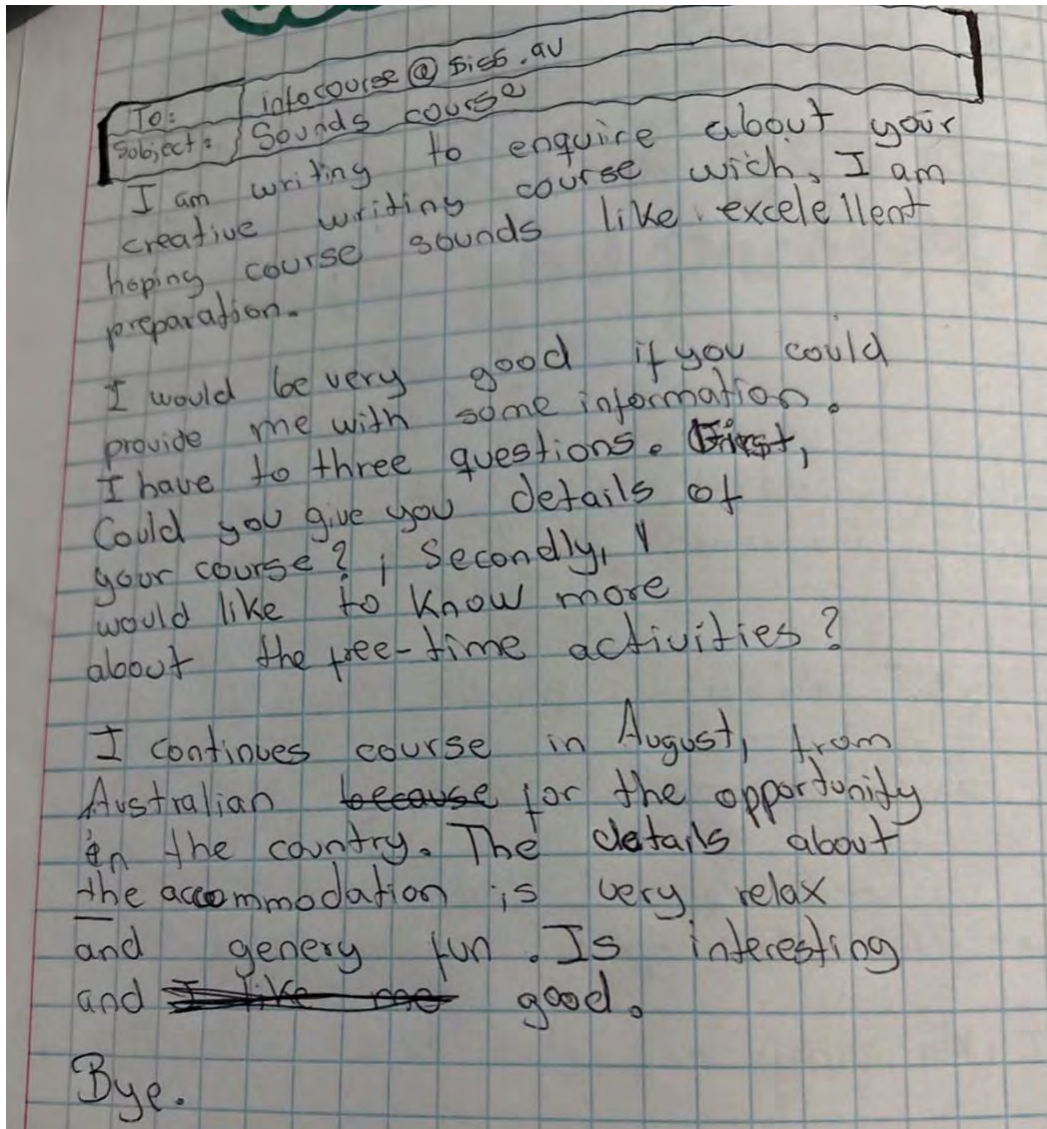 To: infocourse@siss.au
Subject: Sounds course
I am writing to enquire about your
creative writing course wich, I am
hoping course sounds like excelellent
preparation.
I would be very good if you could
provide me with some information.
I have to three questions. First,
Could you give you details of
your course? ; Secondly, I
would like to know more
about the free-time activities?
I continues course in August, from
Australian because for the opportunity
in the country. The details about
the accommodation is very relax
and genery fun. Is interesting
and I like me good.
Bye.